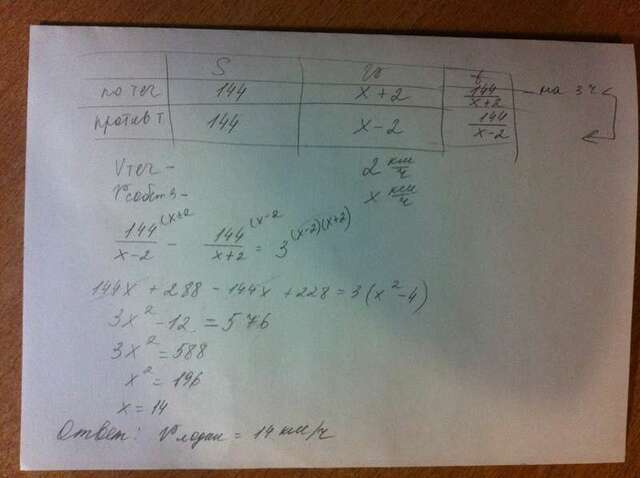 S V t
по теч 144 x+2 144/x+2 - на 3 ч
против т 144 x-2 144/x-2
Vтеч - 2 км/ч
Vсобств - x км/ч
144/x-2 (x+2 - 144/x+2 (x-2 = 3 (x-2)(x+2)
144x + 288 - 144x + 228 = 3(x² - 4)
3x² - 12 = 576
3x² = 588
x² = 196
x = 14
Ответ: Vлодки = 14 км/ч